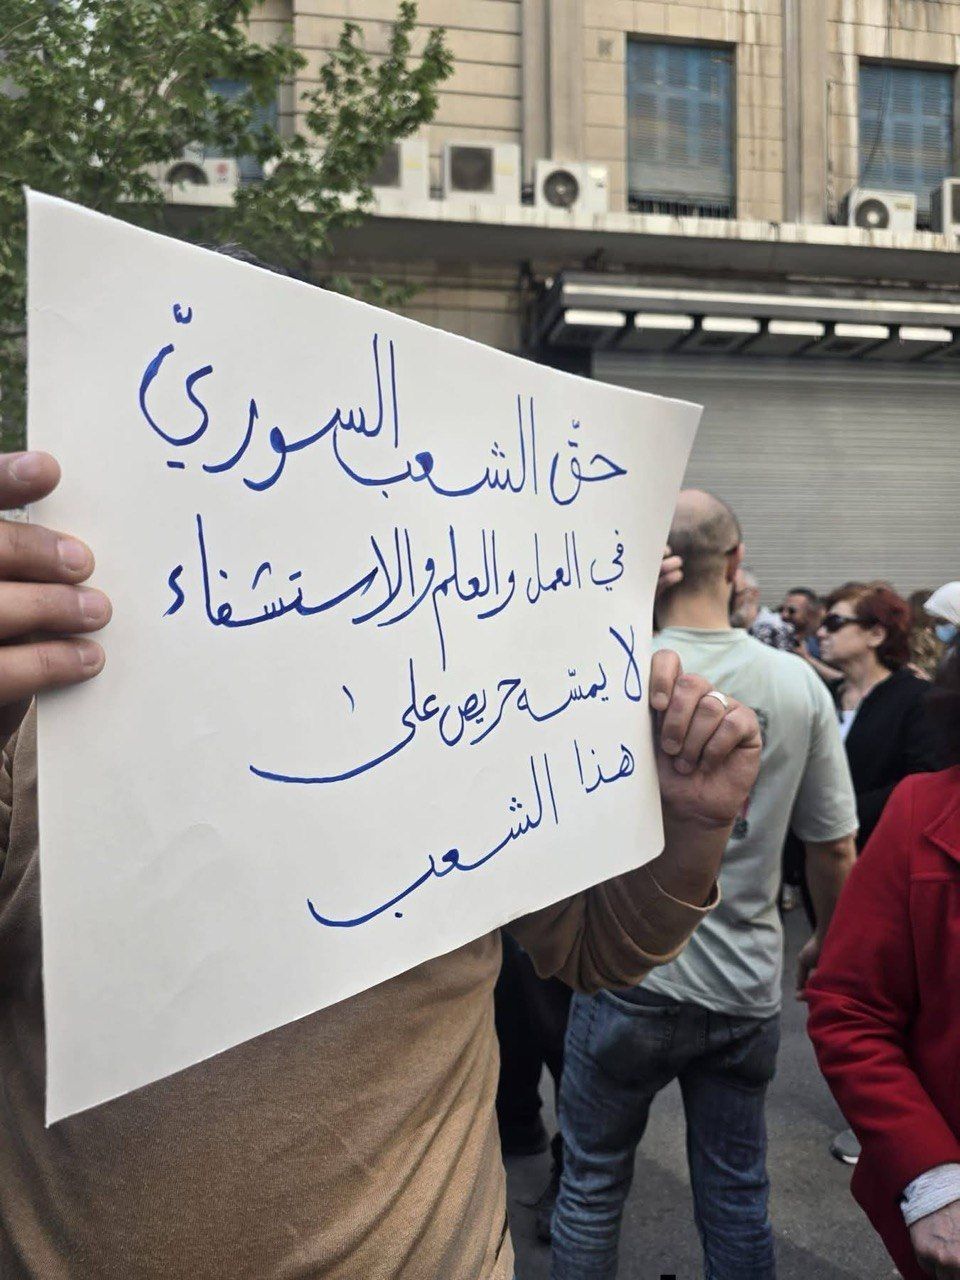 حقّ الشعب السوريّ
في العمل والعلم والاستشفاء
لا يمسّه حريص على
هذا الشعب